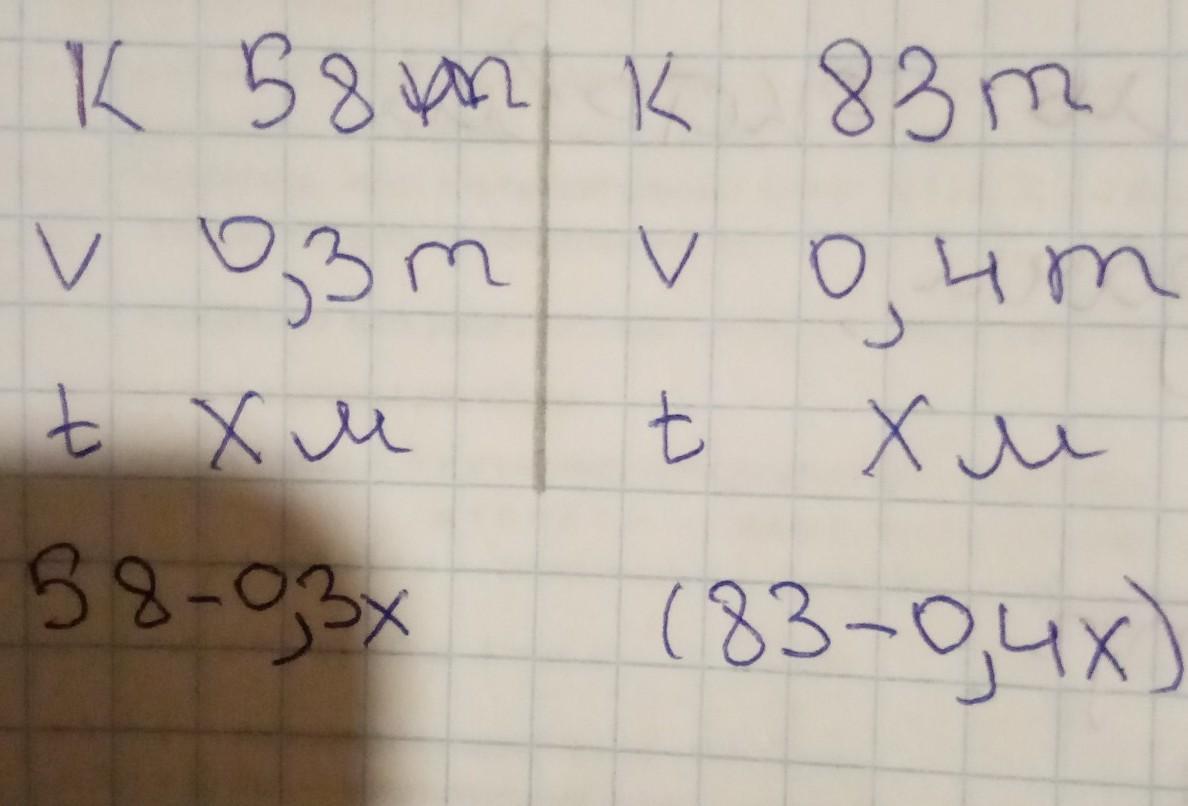 К 58 т К 83 т
v 0,3 т v 0,4 т
t x м t x м
58-0,3x (83-0,4x)